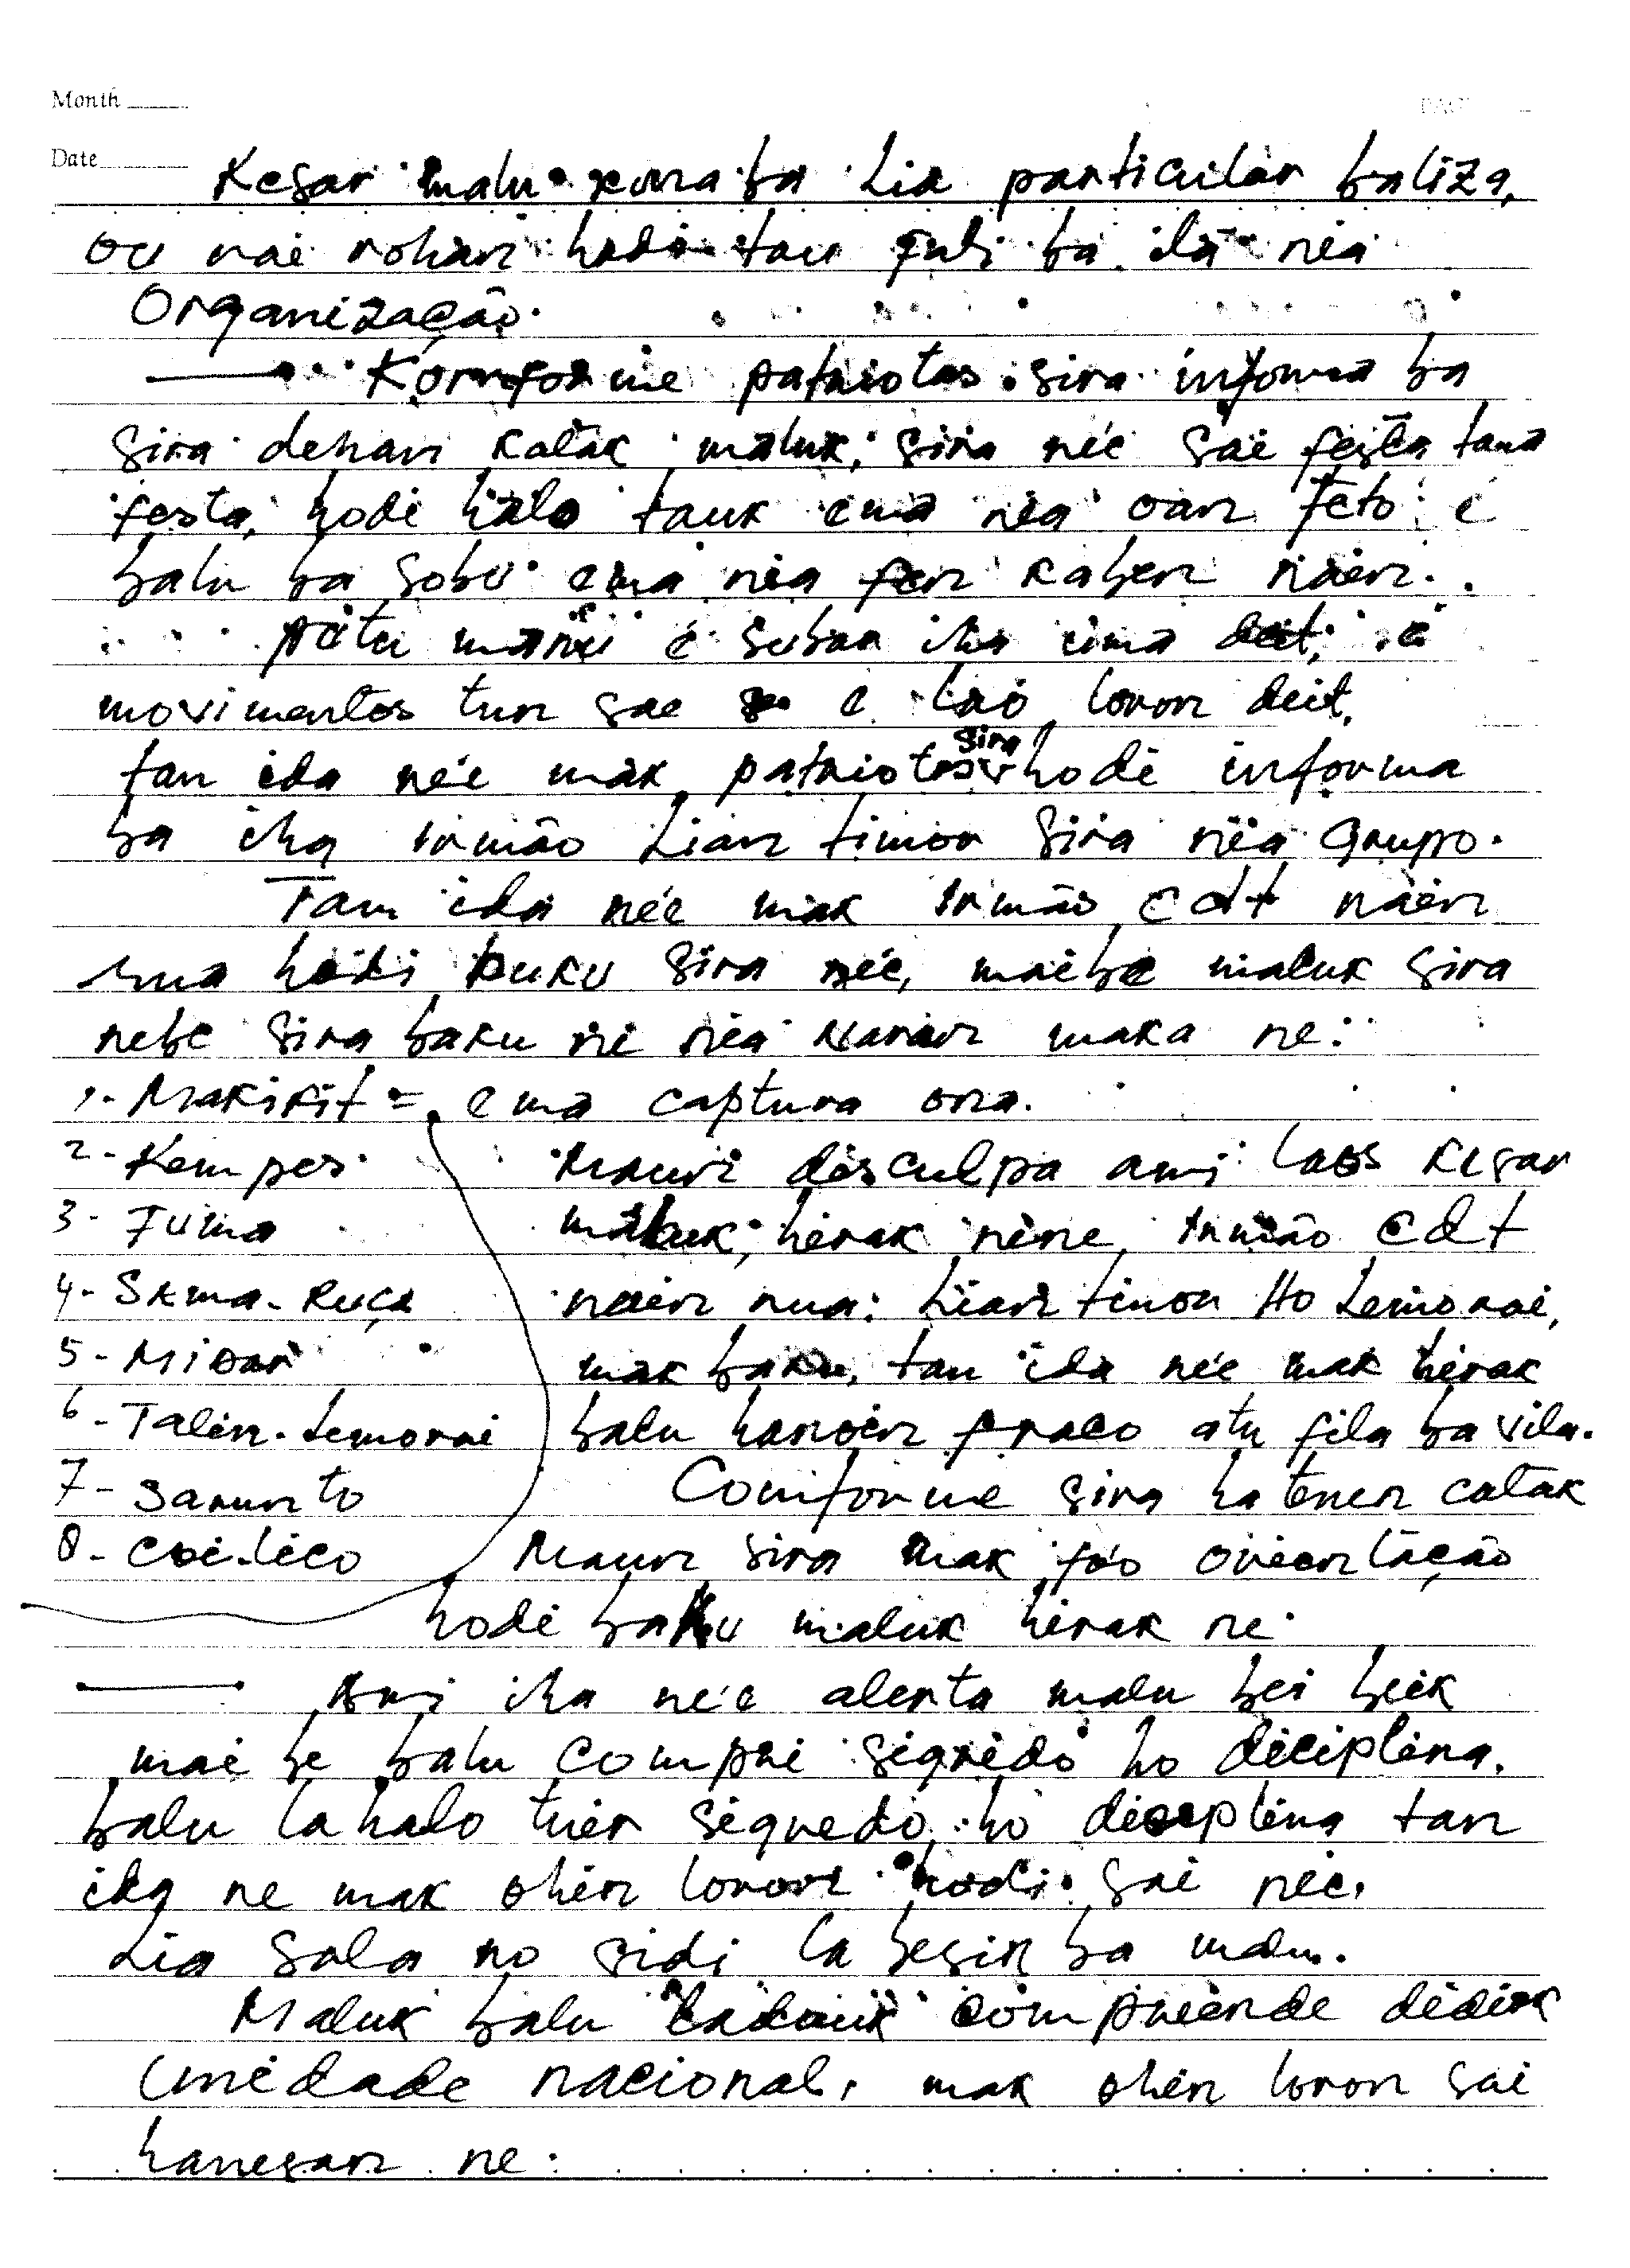 Month
Date
Kesar malu kona ba Lia particular baliza,
ou rai rohan hodi tau fali ba ida nia
Organização.
Komforme patriotas sira informa ba
sira dehan katak maluk sira né'e sae festa tama
festa, hodi halo tauk ema nia oan feto e
balu ba sobu ema nia fen kaben naen.
futu manu e suba iha uma deit, e
movimentos tun sae e lao loron deit,
tan ida né'e mak patriotas sira hodi informa
ba iha Irmão Lian timor sira nia Grupo.
Tam ida né'e mak Irmão cdt naen
rua hodi buku sira né'e, maibe maluk sira
nebe sira baku ne nia naran maka ne:
1- Makikit = ema captura ona.
2- Kempes
3- Fuma
4- Skma-Ruça
5- Misar
6- Talin-Lemorai
7- Sarunto
8- Coi-lico
Maun disculpa ami laos kesar
maluk, hirak néne, Irmão Cdt
naen rua: Lian timor Ho Lemorai,
mak baku, tan ida né'e mak hirak
balu hanoin fraco atu fila ba vila.
Comforme sira hatenen catak
Maun sira mak fóo orientação
hodi baku maluk hirak ne.
Ami iha né'e alerta malu bei beik
mai be balu compri sigredo ho diciplina.
balu la halo tuir sigredo, ho disciplina tan
ida ne mak ohin loron hodi sai né'e.
Lia sala no sidi la besik ba malu.
Maluk balu ladauk compriende didiak
Unidade nacional, mak ohin loron sai
hanesan ne.